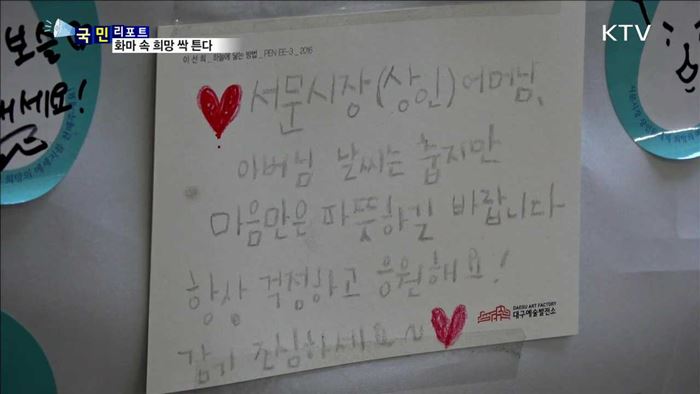 국민 리포트
화마 속 희망 싹 튼다
KTV
이 선 희 _ 하늘에 닿는 방법 _ PEN EE-3 _ 2016
서문시장(상인)어머님,
아버님 날씨는 춥지만
마음만은 따뜻하길 바랍니다
항상 걱정하고 응원해요!
감기 조심하세요~
DAEGU ART FACTORY
대구예술발전소
보슬
세요!